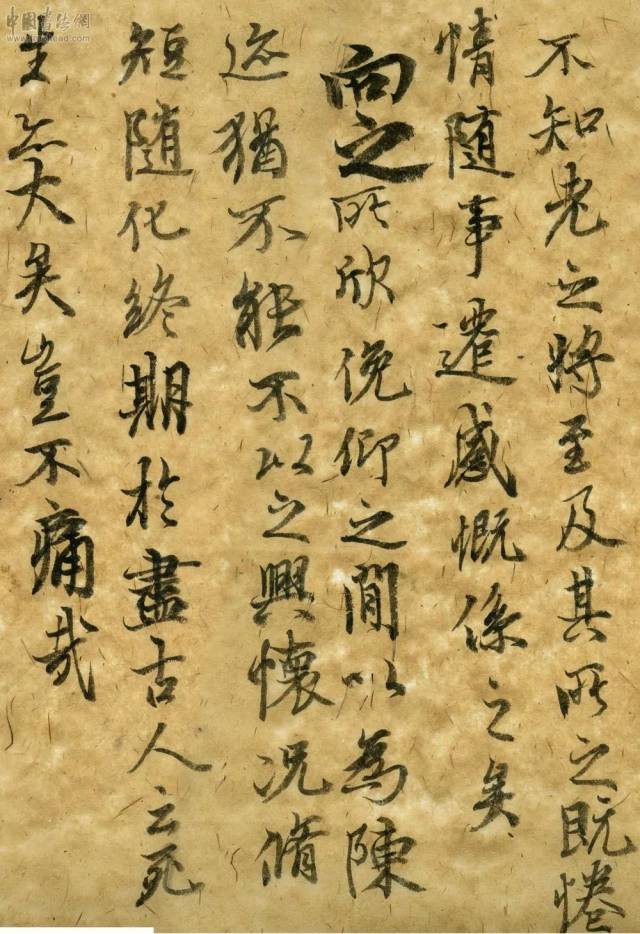 不知老之将至及其所之既惓
情随事遷感慨係之矣
向之所欣俛仰之間以為陳
迹猶不能不以之興懷况脩
短随化終期於盡古人云死
生亦大矣豈不痛哉
中国书法網